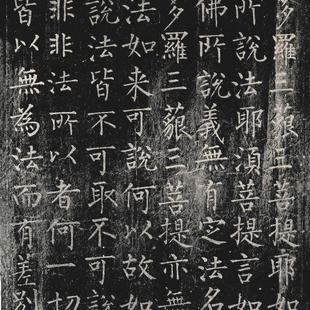 多羅三藐三菩提耶如
所說法耶須菩提言如
佛所說義無有定法名
多羅三藐三菩提亦無
法如来可說何以故如
說法皆不可取不可說
非非法所以者何一切
皆以無為法而有差別